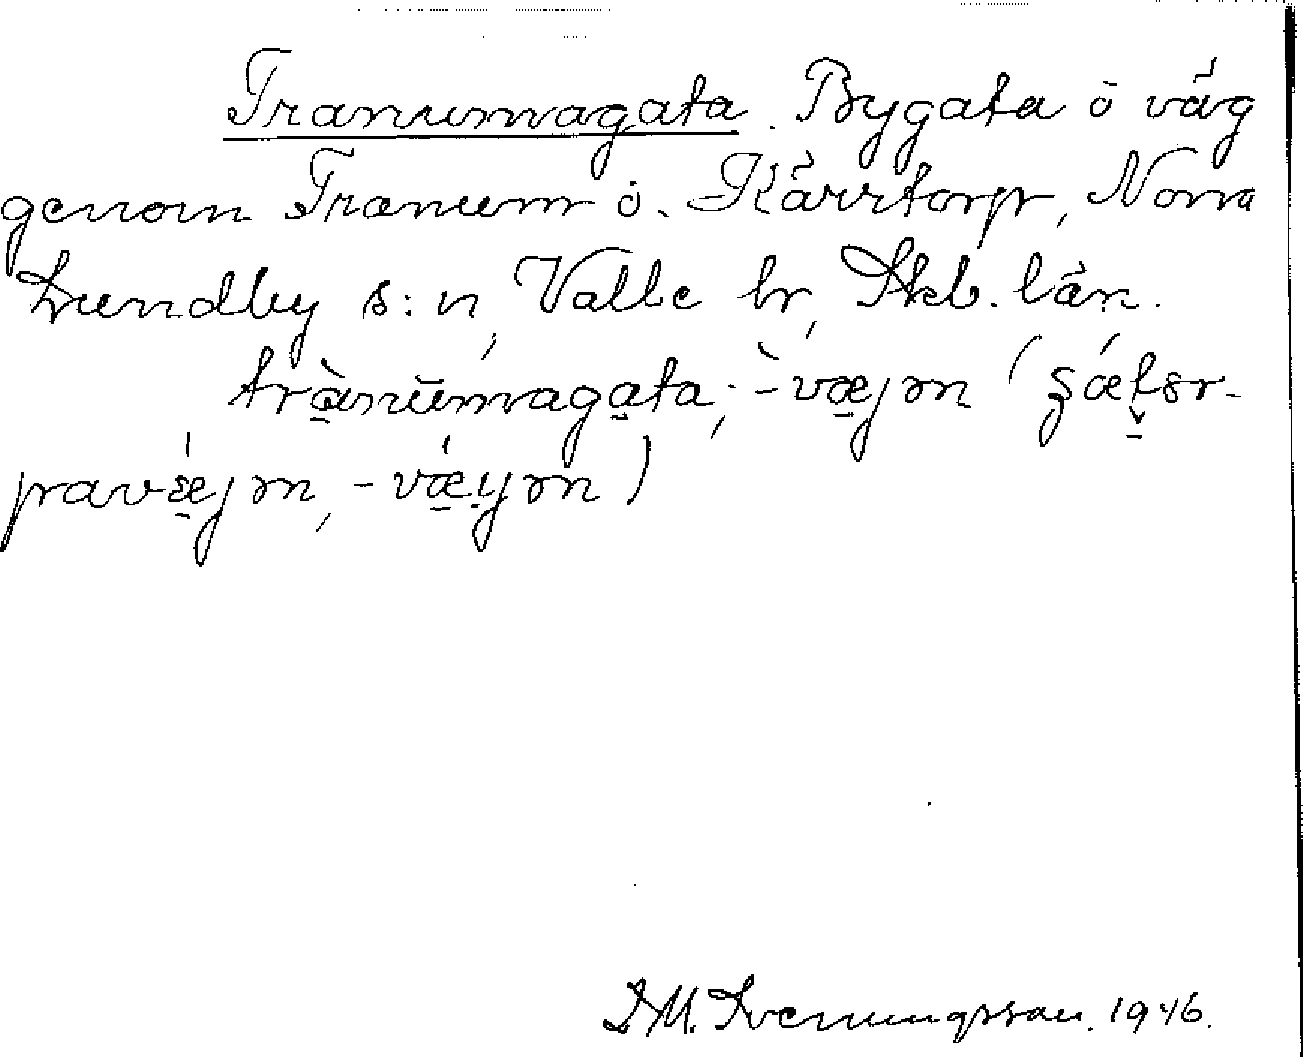 Tranumagata. Bygata o väg
genom Tranum o. Kärrtorp, Norra
Lundby s:n, Valle hr, Skb. län.
trànūmagata; -̀væjən (
pravǽjən, -vǽyən)
Svenungsson. 1946.